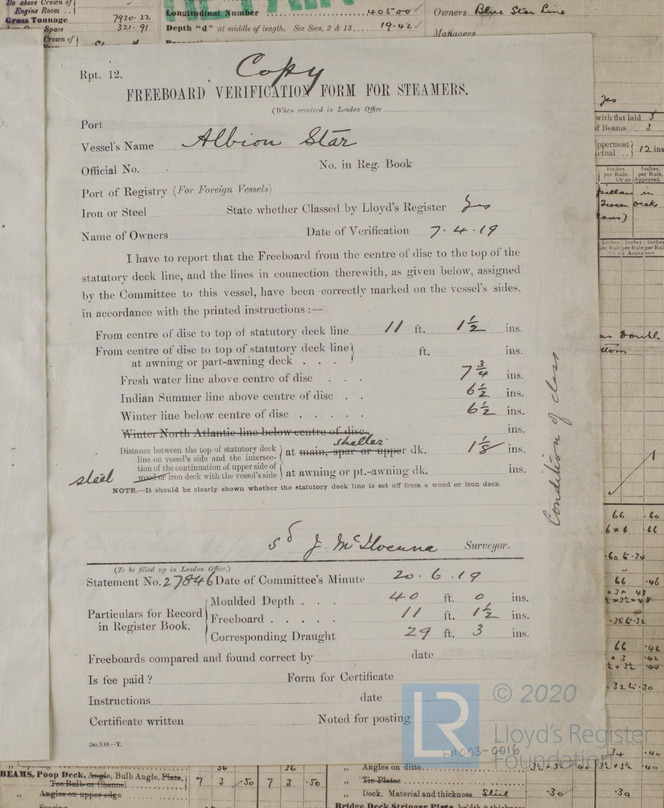 Do above Crown of
Engine Room
Gross Tonnage 7920.22
Space 321.91
Crown of
Longitudinal Number 40500
Depth "d" at middle of length. See Secs. 2 & 13 19.42
Owners Blue Star Line
Managers
Copy
Rpt. 12.
FREEBOARD VERIFICATION FORM FOR STEAMERS.
(When received in London Office
Port
Vessel's Name Albion Star
Official No. No. in Reg. Book
Port of Registry (For Foreign Vessels)
Iron or Steel State whether Classed by Lloyd's Register Yes
Name of Owners Date of Verification 7.4.19
I have to report that the Freeboard from the centre of disc to the top of the
statutory deck line, and the lines in connection therewith, as given below, assigned
by the Committee to this vessel, have been correctly marked on the vessel's sides,
in accordance with the printed instructions:—
From centre of disc to top of statutory deck line 11 ft. 1½ ins.
From centre of disc to top of statutory deck line
at awning or part-awning deck . . . . ft. ins.
Fresh water line above centre of disc . . . 7¾ ins.
Indian Summer line above centre of disc . . 6½ ins.
Winter line below centre of disc . . . . . 6½ ins.
Winter North Atlantic line below centre of disc ins.
Distance between the top of statutory deck
line on vessel's side and the intersec-
tion of the continuation of upper side of
steel wood or iron deck with the vessel's side
shelter
at main, spar or upper dk. 1⅛ ins.
at awning or pt.-awning dk. ins.
NOTE.—It should be clearly shown whether the statutory deck line is set off from a wood or iron deck
Condition of class
sd J. Surveyor.
(To be filled up in London Office.)
Statement No. 27846 Date of Committee's Minute 20.6.19
Particulars for Record
in Register Book.
Moulded Depth . . . 40 ft. 0 ins.
Freeboard . . . . . 11 ft. 1½ ins.
Corresponding Draught 29 ft. 3 ins.
Freeboards compared and found correct by date
Is fee paid? Form for Certificate
Instructions date
Certificate written Noted for posting
© 2020
LR
Lloyd's Register
Foundation
BEAMS, Poop Deck, Angle, Bulb Angle, Plate,
Tee Bulb or Channel 7 3 .50 7 3 .50
Angles on upper edge
Angles on ditto
Tie Plates
Deck. Material and thickness Steel .30 .30
Bridge Deck Stringer Plate